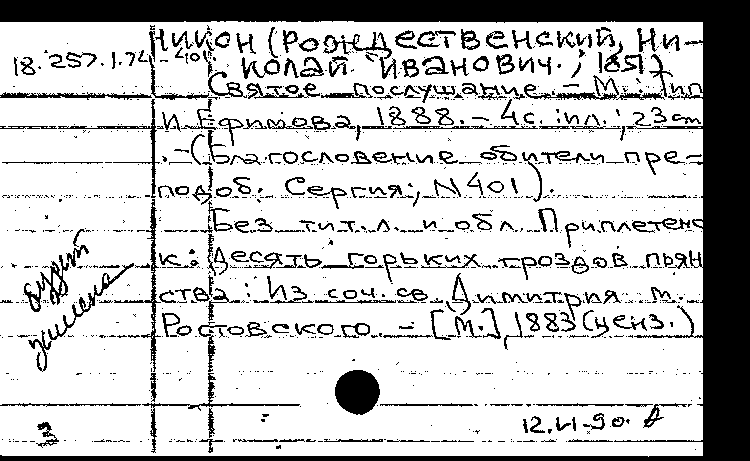 Никон (Рождественский, Ни-
18.257.1.74 -401. колай Иванович.; 1851)
Святое послушание. - М.: Тип
И. Ефимова, 1888. - 4с. ил.; 23 cm
. - (Благословение обители пре-
подоб. Сергия; N 401).
Без тит. л. и обл Приплетено
к: Десять горьких гроздов пьян
ства: Из соч. св. Димитрия м.
Ростовского. - [М.], 1883 (ценз.)
будет
усилена
3
12.VI-90.